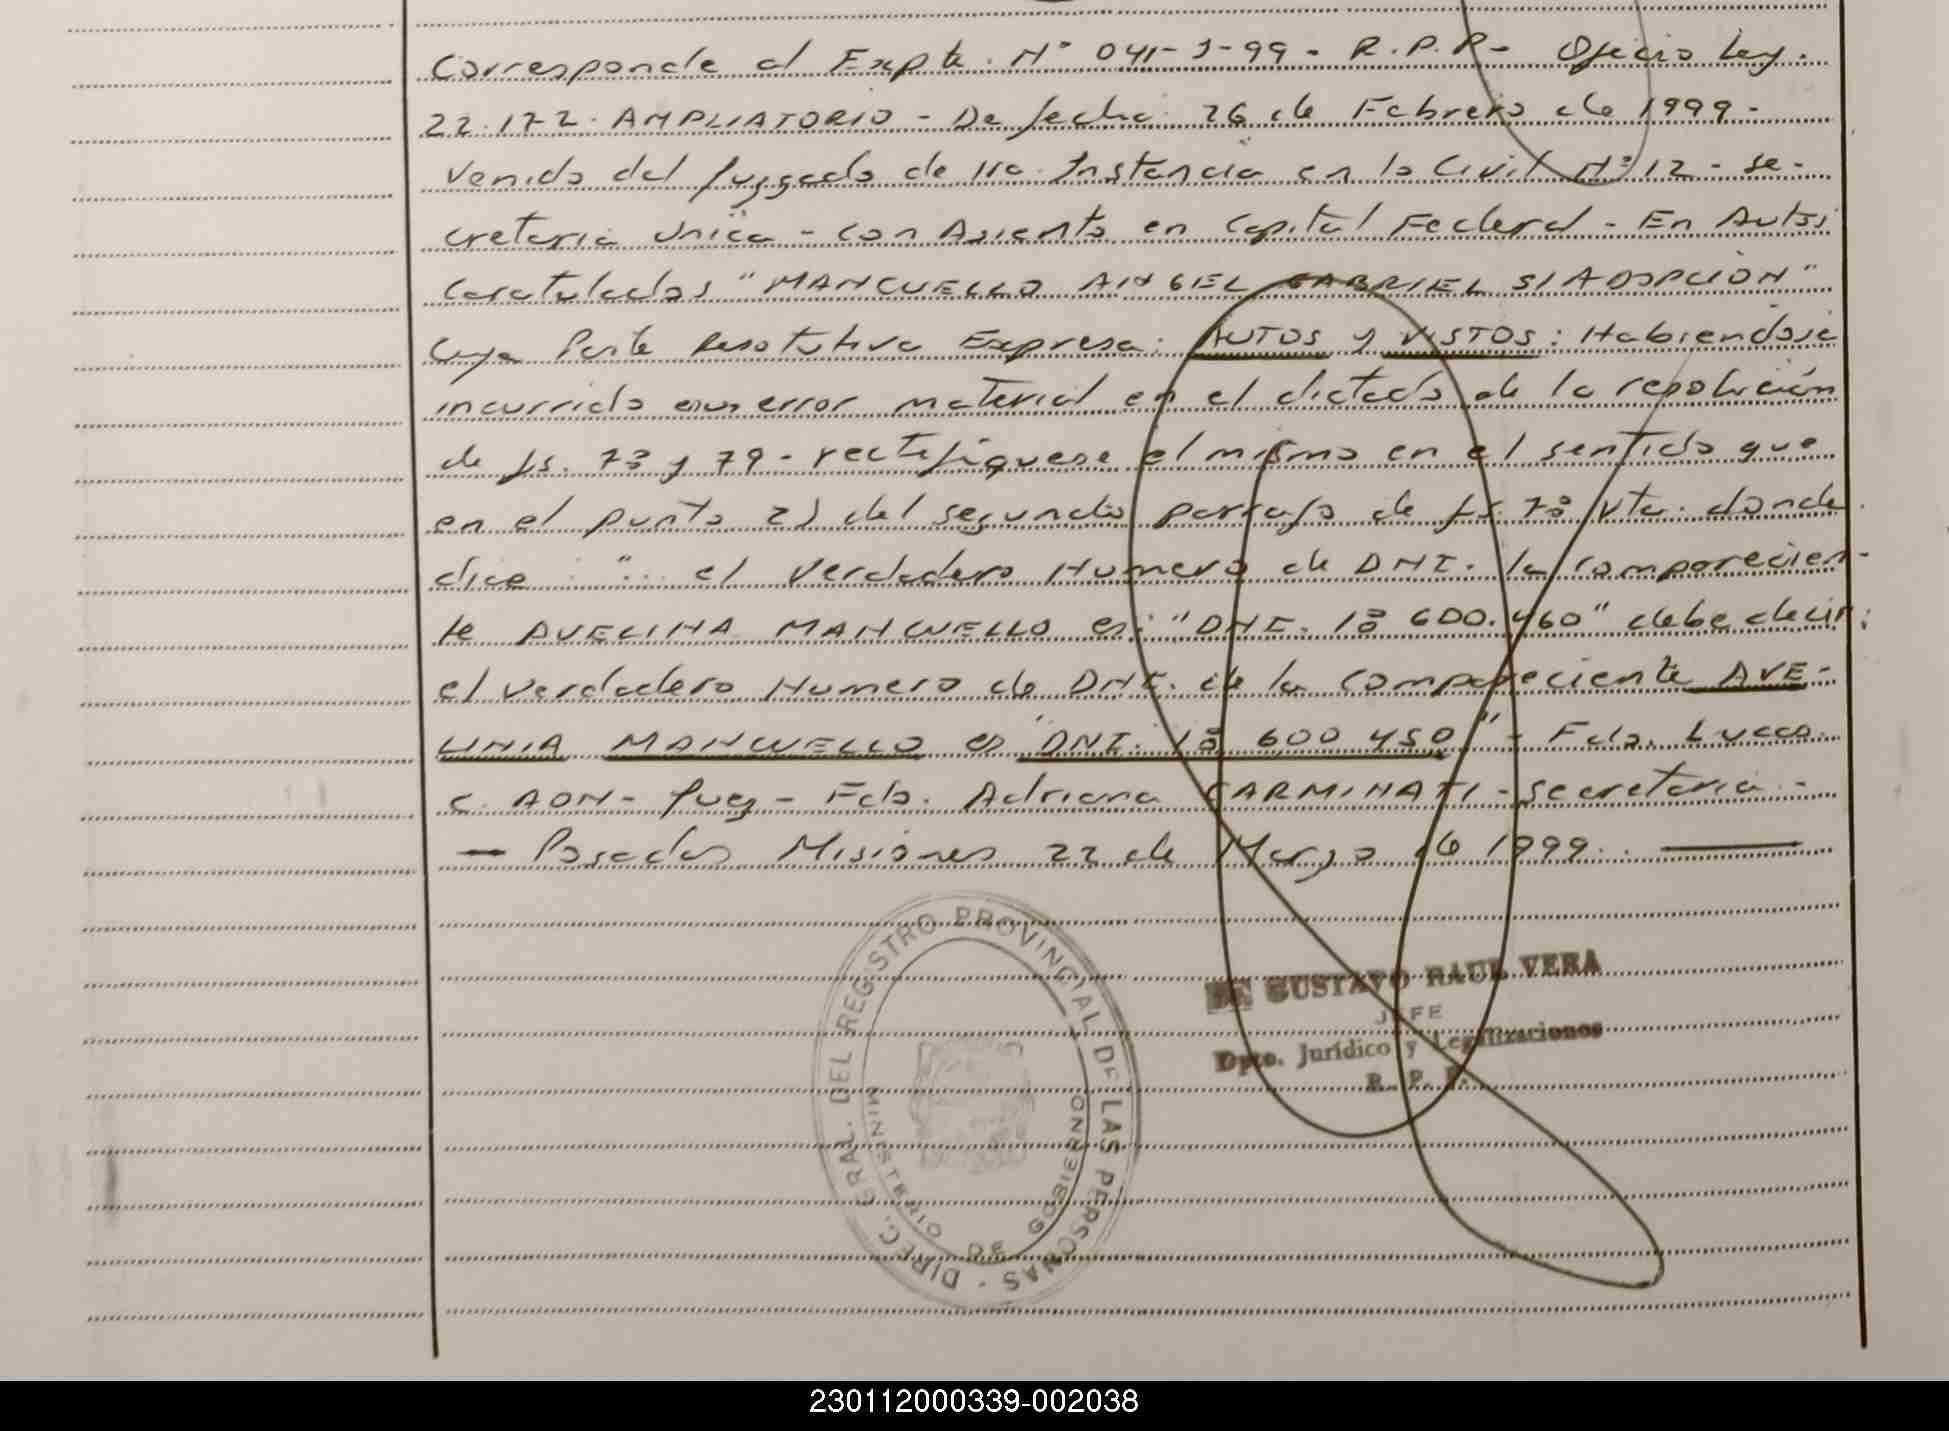 Corresponde al Expte. N° 041-J-99- R.P.R- Oficio Ley.
22.172. AMPLIATORIO - De fecha 26 de Febrero de 1999-
Venido del Juzgado de 1ra. Instancia en lo Civil N° 12 - Se-
cretaria Unica - con Asiento en Capital Federal - En Autos
Caratulados "MANCUELLO ANGEL GABRIEL S/ADOPCION"
Cuya Parte Resolutiva Expresa: AUTOS y VISTOS: Habiendose
incurrido en error material en el dictado de la resolución
de fs. 78 y 79 - rectifiquese el mismo en el sentido que
en el punto 2) del segundo parrafo de fs. 78 vta. donde
dice : "... el verdadero Numero de DNI. la comparecien-
te AVELINA MANCUELLO es: "DNI. 18 600.460" debe decir:
el verdadero Numero de DNI. de la compareciente AVE-
LINIA MANCUELLO es "DNI. 18 600 450" - Fdo. Lucas
C. AON - Juez - Fdo. Adriana CARMINATI - Secretaria -
— Posadas Misiones 22 de Marzo de 1999. —
DIREC. GRAL. DEL REGISTRO PROVINCIAL DE LAS PERSONAS -
MINISTERIO DE GOBIERNO
GUSTAVO RAUL VERA
JEFE
Dpto. Jurídico y Legalizaciones
R. P. P.
230112000339-002038